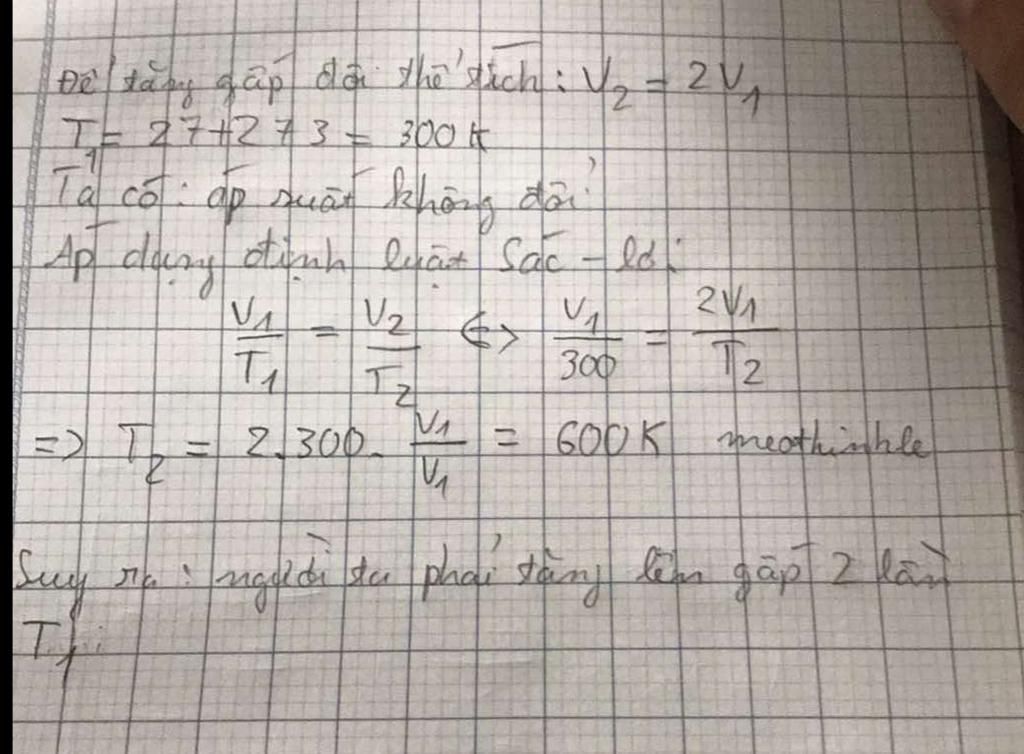 Để tăng gấp đôi thể tích: V₂ = 2V₁
T₁ = 27+273 = 300K
Ta có: áp suất không đổi
Áp dụng định luật Sác-lơ:
V₁/T₁ = V₂/T₂ <=> V₁/300 = 2V₁/T₂
=> T₂ = 2.300. V₁/V₁ = 600K meothinhle
Suy ra: người ta phải tăng lên gấp 2 lần
T₁